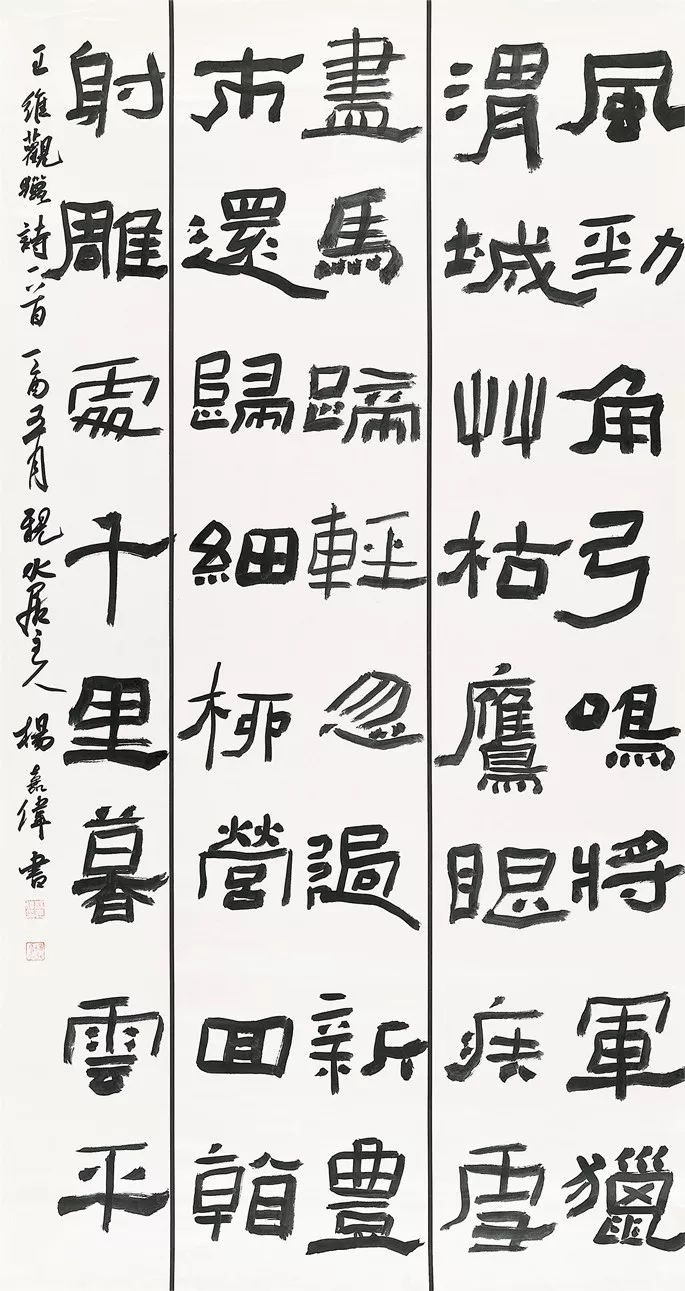 風勁角弓鳴將軍獵
渭城艸枯鷹眼疾雪
盡馬蹄輕忽過新豊
市還歸細柳營回看
射雕處千里暮雲平
王維觀獵詩一首 丁酉五月 親水居主人 楊嘉偉書